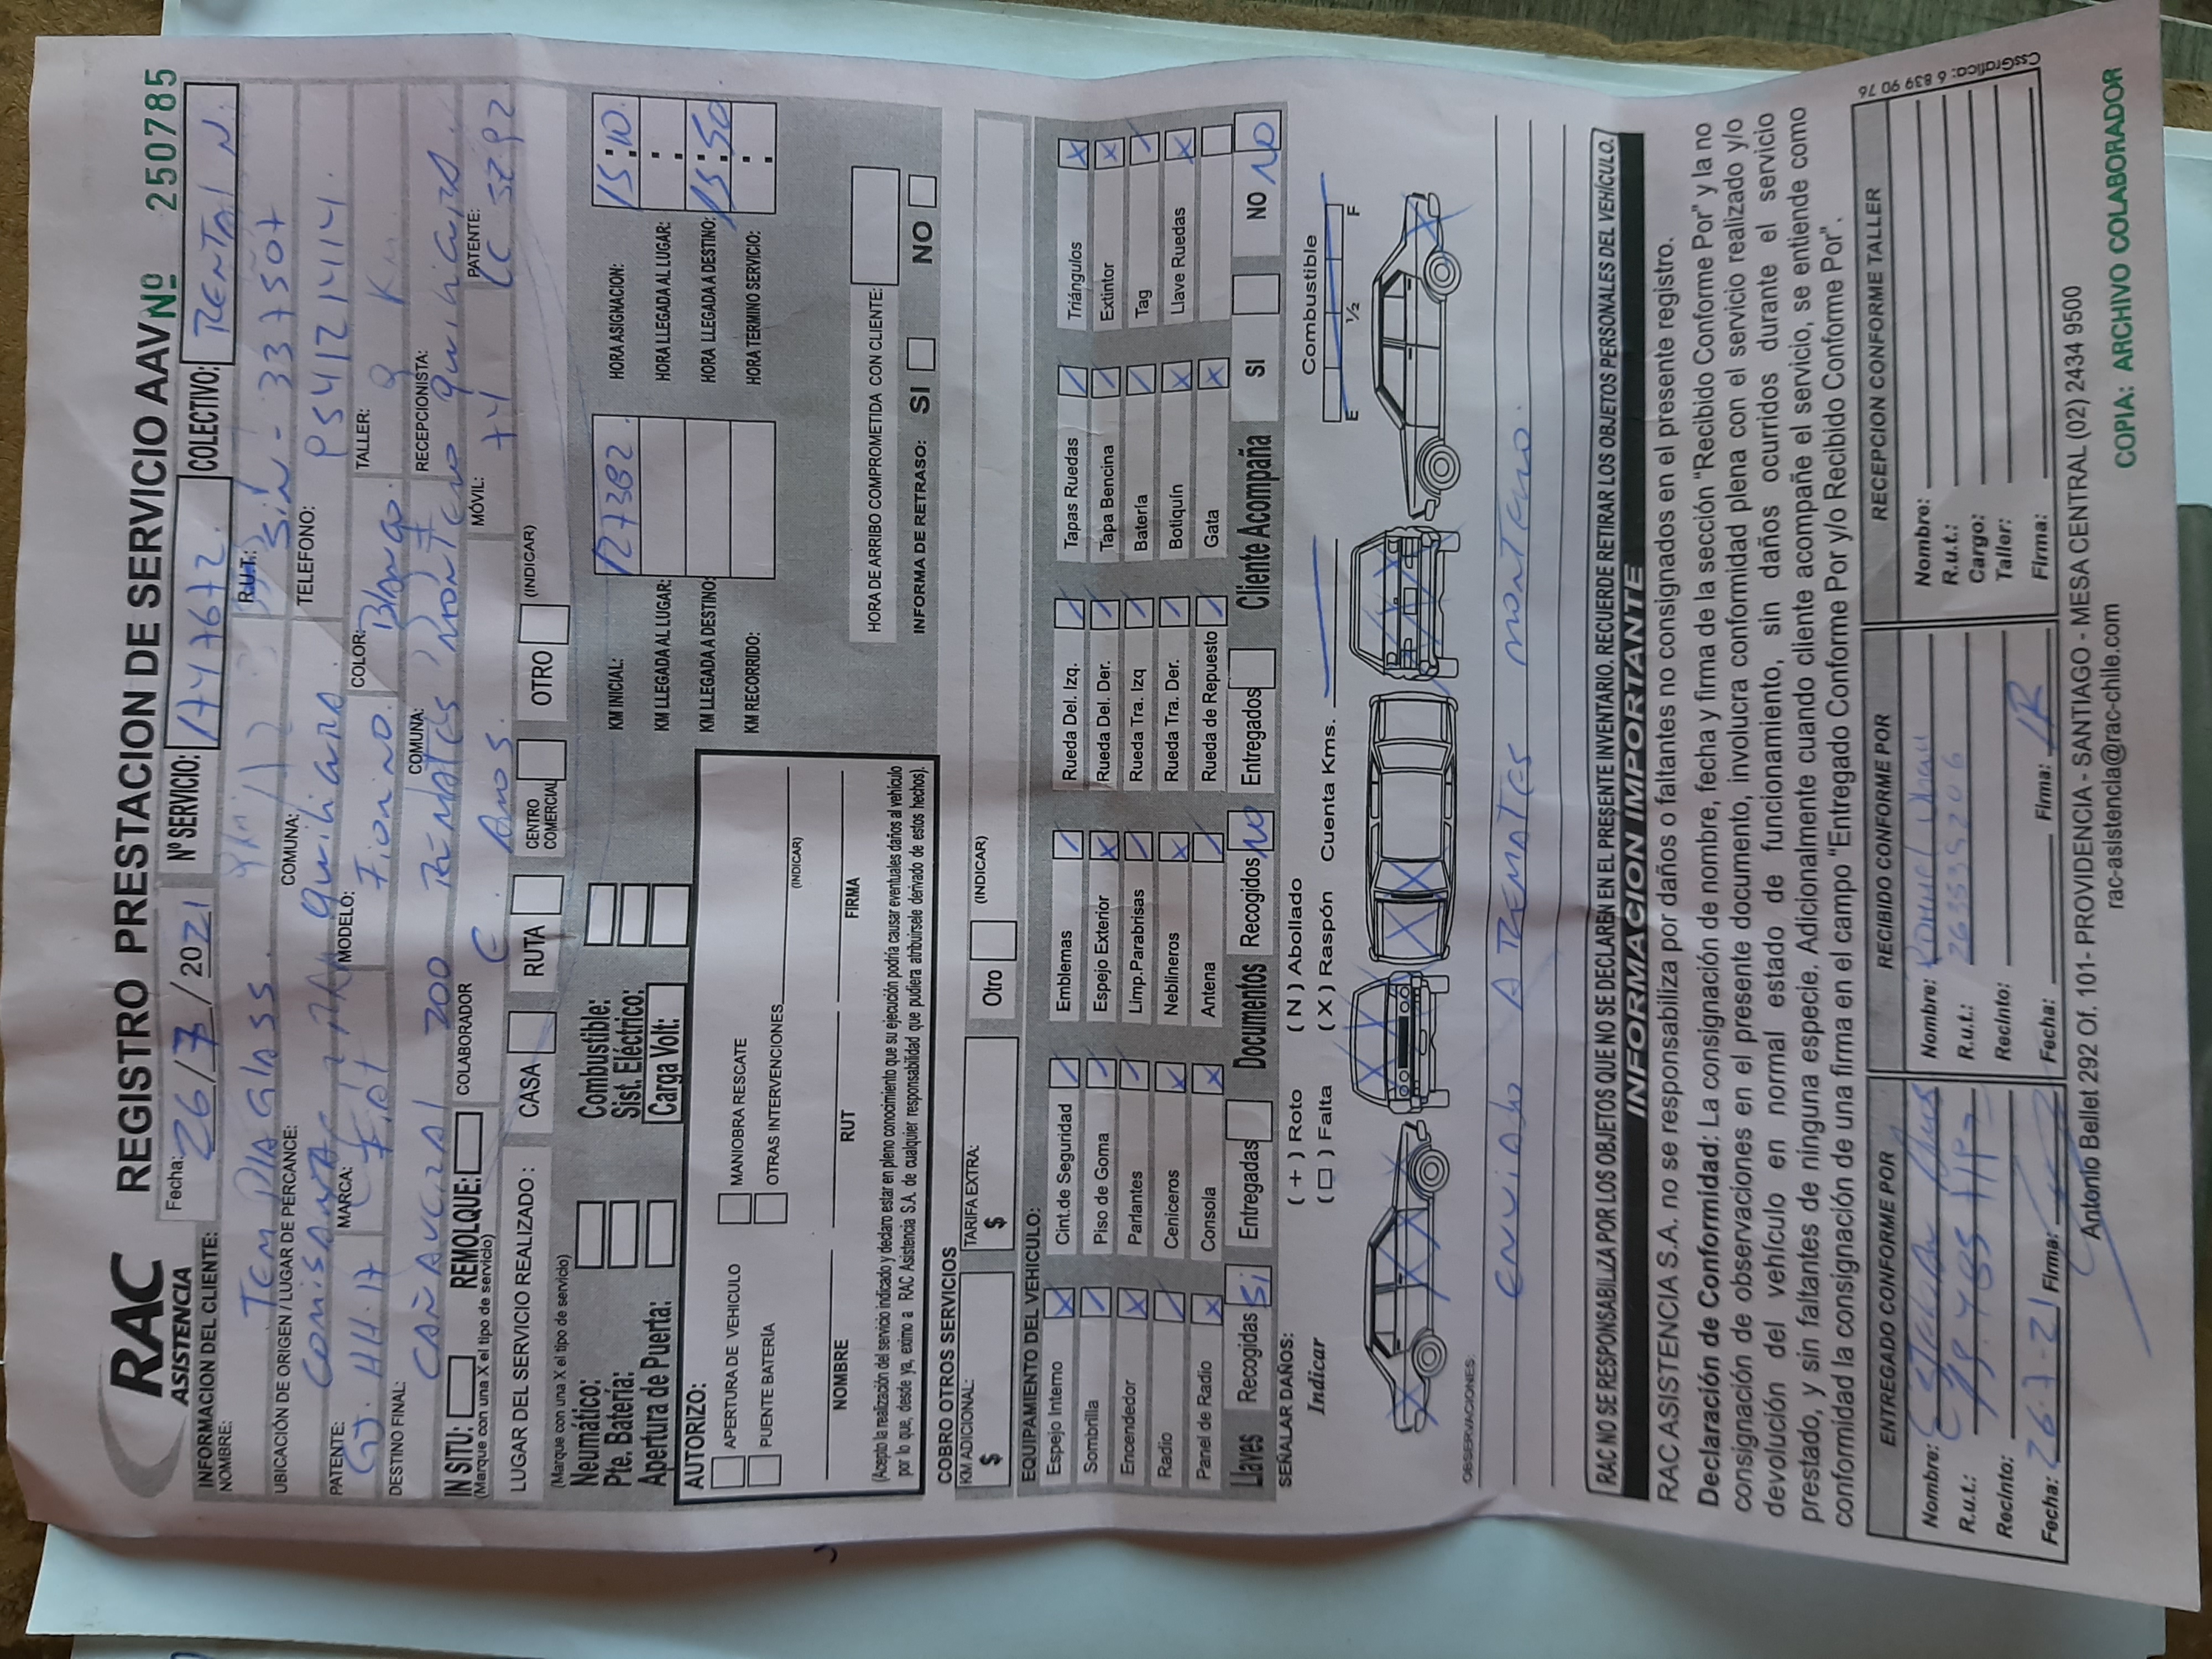 RAC
ASISTENCIA
REGISTRO PRESTACION DE SERVICIO AAV Nº 250785
Fecha: 26/7/2021 Nº SERVICIO: 1747672 COLECTIVO: RENTAL N.
INFORMACION DEL CLIENTE:
NOMBRE: R.U.T.:
TEMPLA GLASS. SIN - 337507
UBICACIÓN DE ORIGEN / LUGAR DE PERCANCE: COMUNA: TELEFONO:
Quilicura. PS41214114.
PATENTE: MARCA: MODELO: COLOR: TALLER:
GJ. HH. 17 Fiat Fiorino. Blanco.
DESTINO FINAL: COMUNA: RECEPCIONISTA:
CAÑAVERAL 200 REMATES Quilicura.
IN SITU: REMOLQUE: COLABORADOR MÓVIL: PATENTE:
(Marque con una X el tipo de servicio)
C. Amos 74 LC SZ 92
LUGAR DEL SERVICIO REALIZADO: CASA RUTA CENTRO COMERCIAL OTRO (INDICAR)
(Marque con una X el tipo de servicio)
Neumático: Combustible:
Pte. Batería: Sist. Eléctrico:
Apertura de Puerta: Carga Volt:
KM INICIAL: 127382. HORA ASIGNACION: 15:10.
KM LLEGADA AL LUGAR: HORA LLEGADA AL LUGAR:
KM LLEGADA A DESTINO: HORA LLEGADA A DESTINO: 15:50
KM RECORRIDO: HORA TERMINO SERVICIO:
AUTORIZO:
APERTURA DE VEHICULO MANIOBRA RESCATE
PUENTE BATERÍA OTRAS INTERVENCIONES (INDICAR)
NOMBRE RUT FIRMA
(Acepto la realización del servicio indicado y declaro estar en pleno conocimiento que su ejecución podría causar eventuales daños al vehículo
por lo que, desde ya, eximo a RAC Asistencia S.A. de cualquier responsabilidad que pudiera atribuírsele derivado de estos hechos).
HORA DE ARRIBO COMPROMETIDA CON CLIENTE:
INFORMA DE RETRASO: SI NO
COBRO OTROS SERVICIOS
KM ADICIONAL: $ TARIFA EXTRA: $ Otro (INDICAR)
EQUIPAMIENTO DEL VEHICULO:
Espejo Interno X Cint.de Seguridad / Emblemas / Rueda Del. Izq. / Tapas Ruedas / Triángulos X
Sombrilla / Piso de Goma / Espejo Exterior X Rueda Del. Der. / Tapa Bencina / Extintor X
Encendedor X Parlantes / Limp.Parabrisas / Rueda Tra. Izq / Batería / Tag /
Radio / Ceniceros X Neblineros X Rueda Tra. Der. / Botiquín X Llave Ruedas X
Panel de Radio X Consola X Antena / Rueda de Repuesto / Gata X
Llaves Recogidas Si Entregadas Documentos Recogidos NO Entregados Cliente Acompaña SI NO NO
SEÑALAR DAÑOS:
Indicar ( + ) Roto ( N ) Abollado
( □ ) Falta ( X ) Raspón Cuenta Kms. Combustible E 1/2 F
OBSERVACIONES:
Enviado A REMATES MONTERO.
RAC NO SE RESPONSABILIZA POR LOS OBJETOS QUE NO SE DECLAREN EN EL PRESENTE INVENTARIO. RECUERDE RETIRAR LOS OBJETOS PERSONALES DEL VEHÍCULO.
INFORMACION IMPORTANTE
RAC ASISTENCIA S.A. no se responsabiliza por daños o faltantes no consignados en el presente registro.
Declaración de Conformidad: La consignación de nombre, fecha y firma de la sección "Recibido Conforme Por" y la no
consignación de observaciones en el presente documento, involucra conformidad plena con el servicio realizado y/o
devolución del vehículo en normal estado de funcionamiento, sin daños ocurridos durante el servicio
prestado, y sin faltantes de ninguna especie. Adicionalmente cuando cliente acompañe el servicio, se entiende como
conformidad la consignación de una firma en el campo "Entregado Conforme Por y/o Recibido Conforme Por".
CssGrafica: 6 839 90 76
ENTREGADO CONFORME POR RECIBIDO CONFORME POR RECEPCION CONFORME TALLER
Nombre: Nombre: Nombre:
R.u.t.: R.u.t.: 26353520 6 R.u.t.:
Cargo:
Recinto: Recinto: Taller:
Fecha: 26-7-21 Firma: Fecha: Firma: Firma:
Antonio Bellet 292 Of. 101- PROVIDENCIA - SANTIAGO - MESA CENTRAL (02) 2434 9500
rac-asistencia@rac-chile.com
COPIA: ARCHIVO COLABORADOR